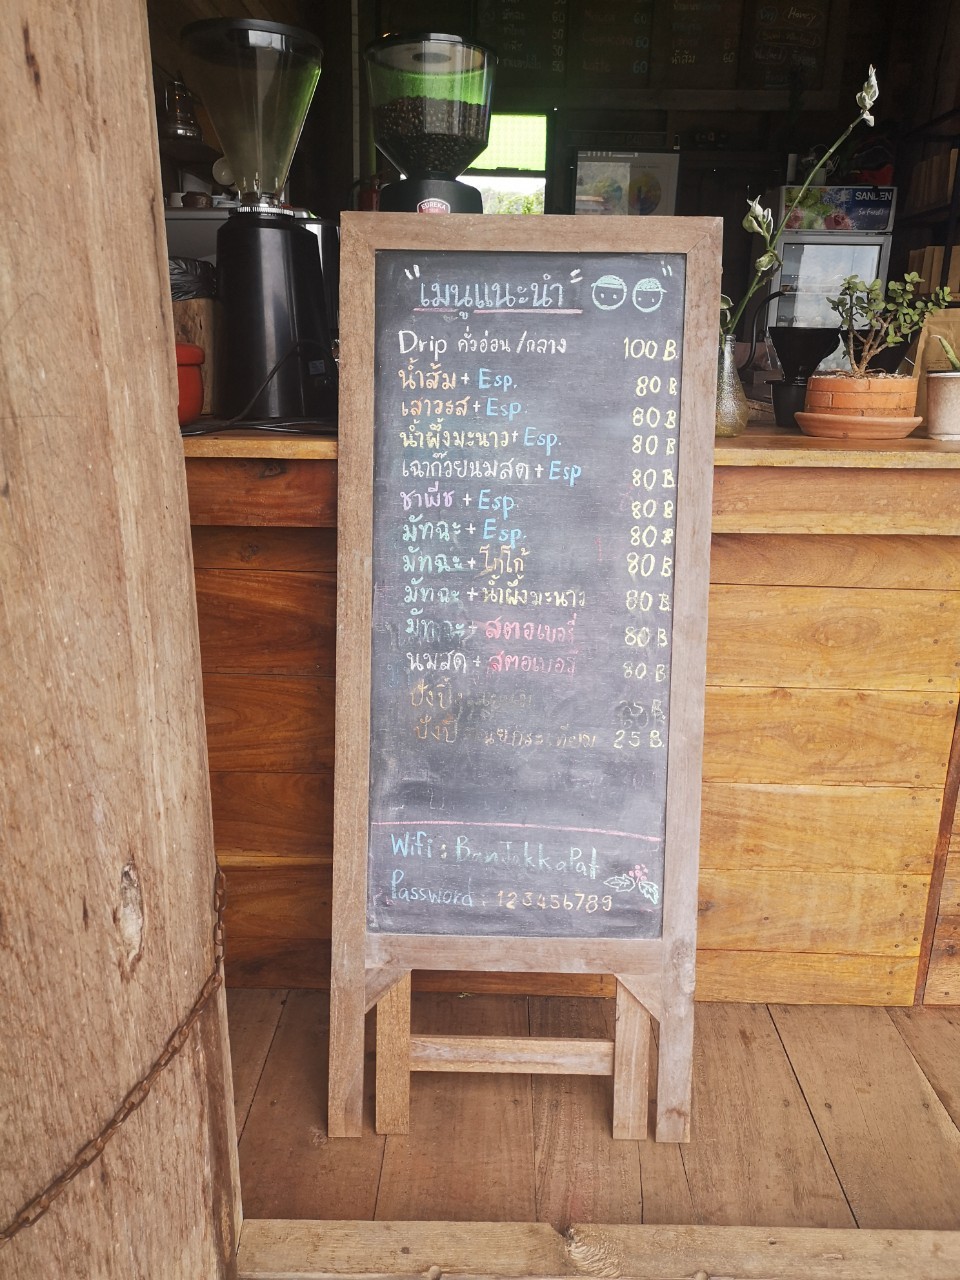 "เมนูแนะนำ"
Drip คั่วอ่อน/กลาง 100 B.
น้ำส้ม + Esp. 80 B
เสาวรส + Esp. 80 B
น้ำผึ้งมะนาว + Esp. 80 B
เฉาก๊วยนมสด + Esp 80 B
ชาพีช + Esp. 80 B
มัทฉะ + Esp. 80 B
มัทฉะ + โกโก้ 80 B
มัทฉะ + น้ำผึ้งมะนาว 80 B
มัทฉะ + สตอเบอรี่ 80 B
นมสด + สตอเบอรี่ 80 B
ปังปิ้ง B
ปังปิ้ง 25 B.
Wifi : BanJakkaPat
Password : 123456789
EUREKA
SANDEN